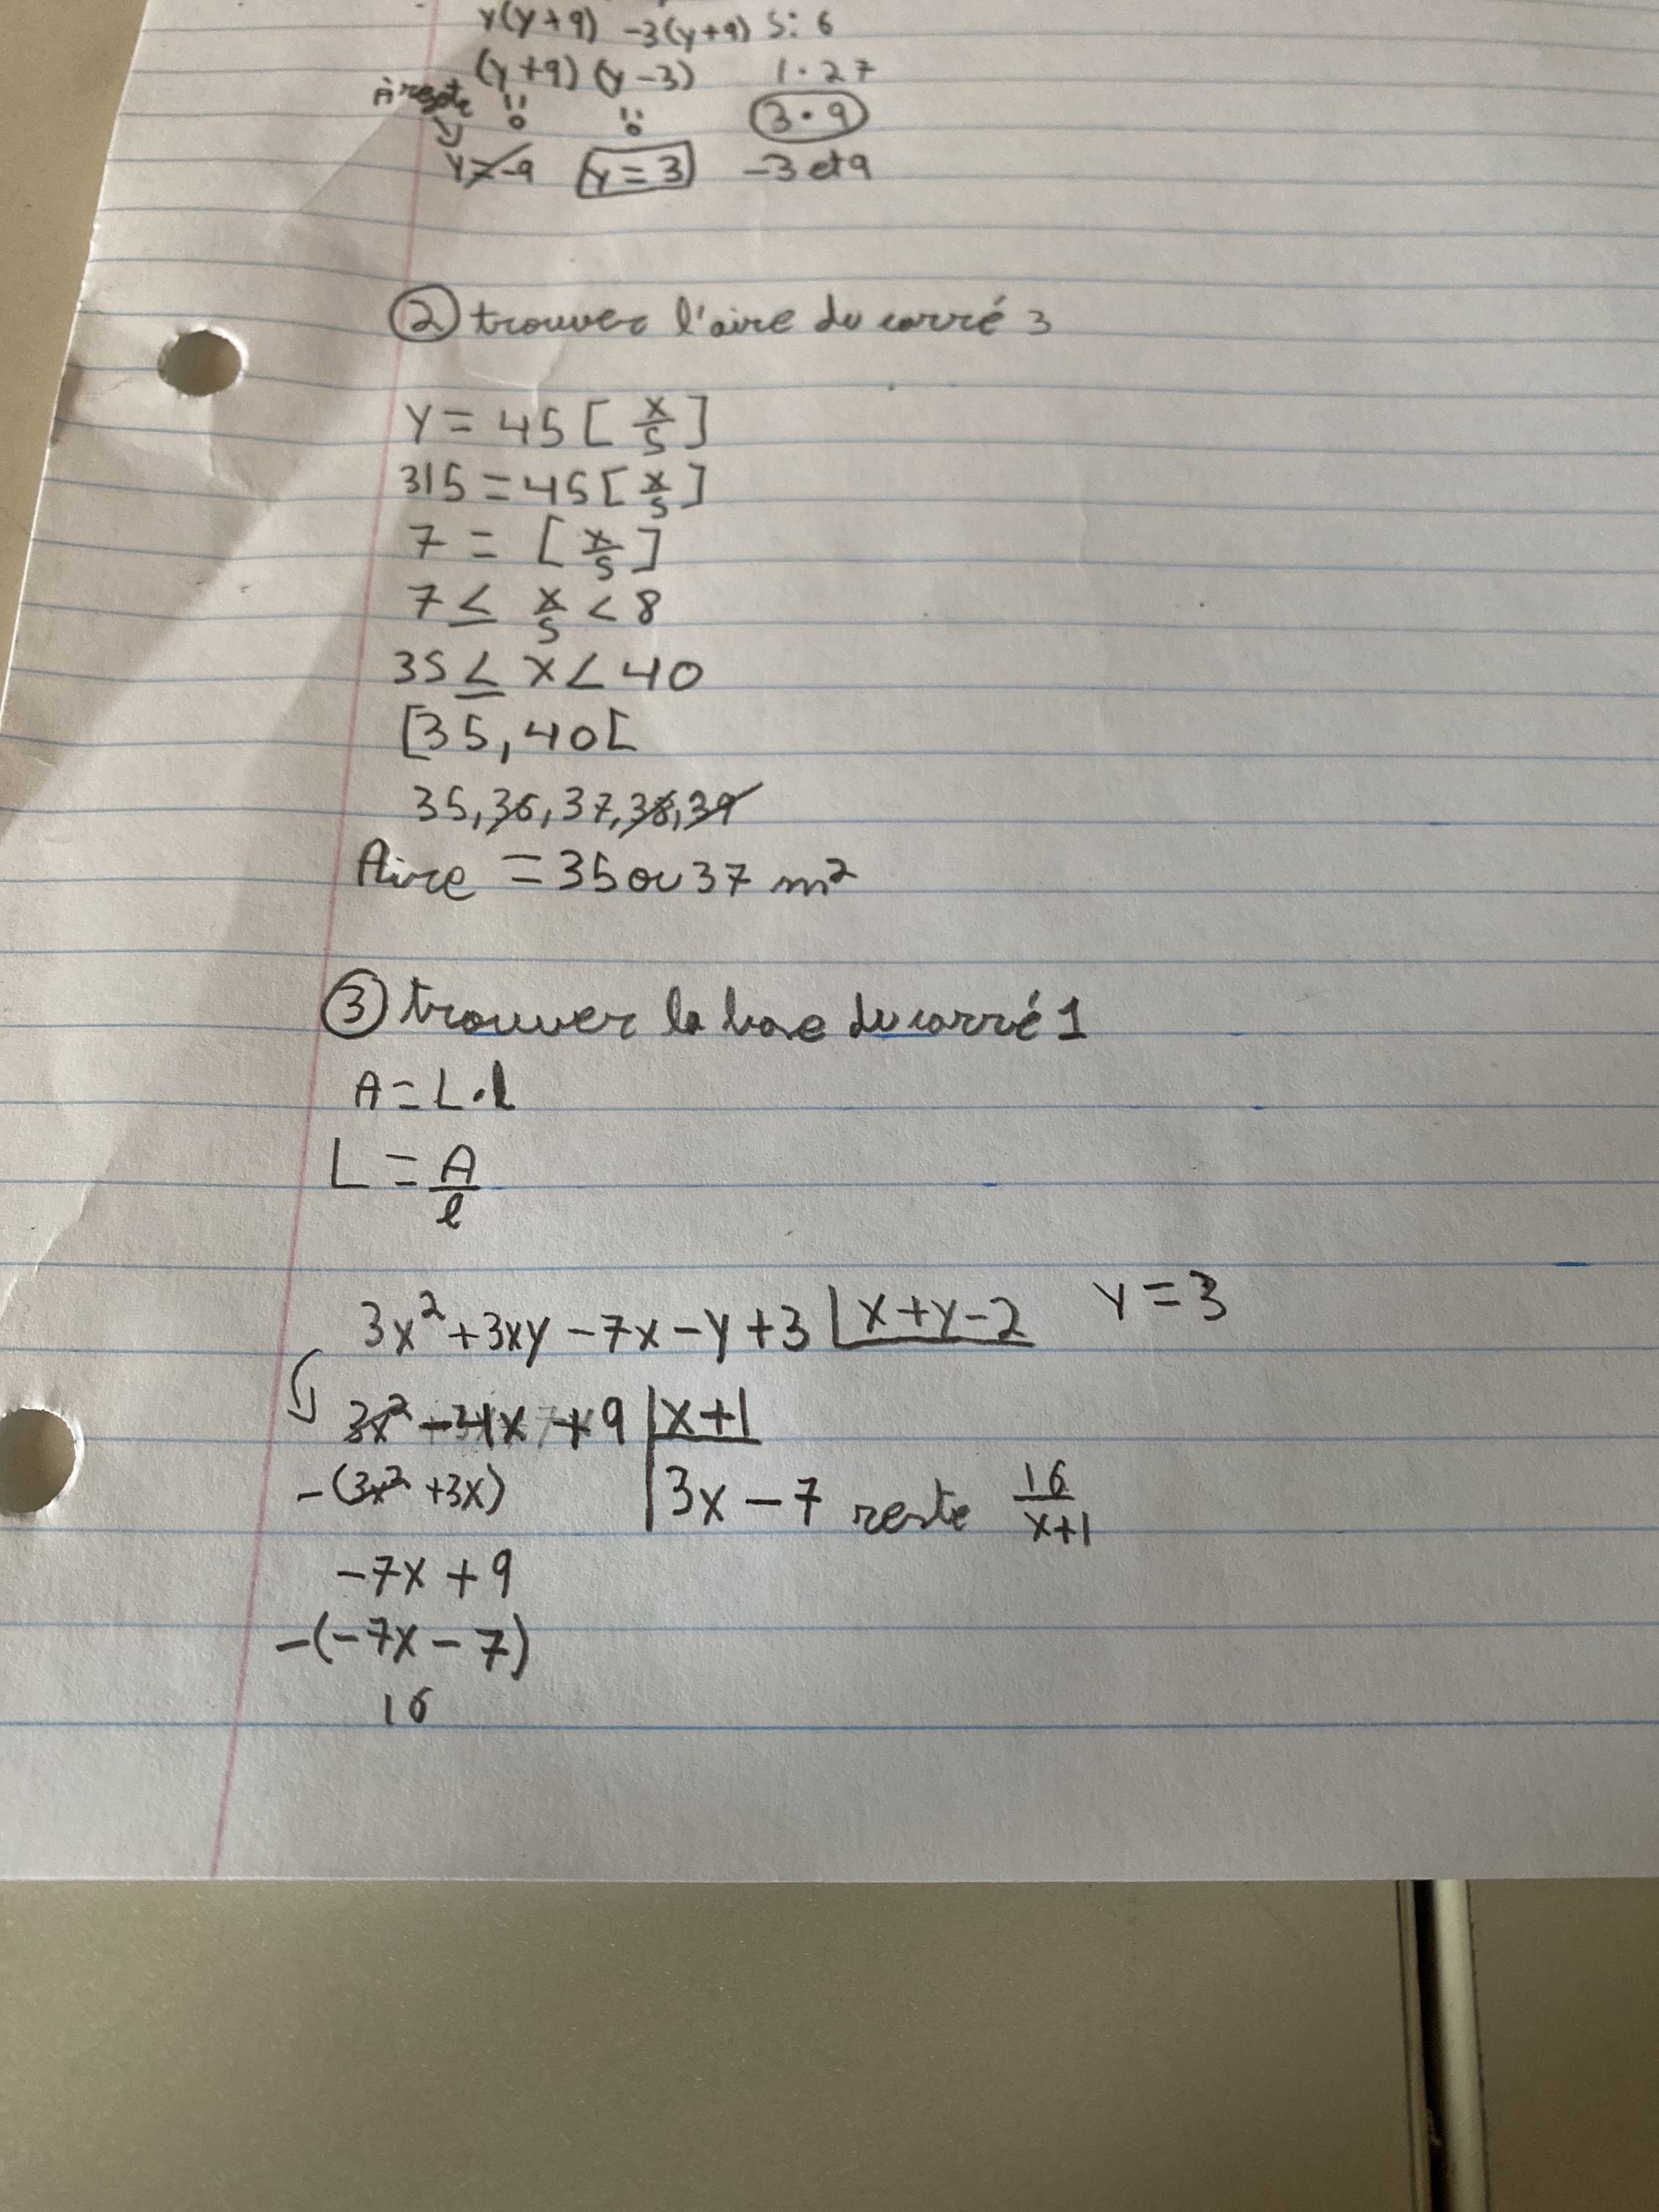 y(y+9) -3(y+9) S: 6
(y+9) (y-3) 1·27
à rejeter 0 0 3·9
y=-9 y=3 -3 et 9
② trouver l'aire du carré 3
y = 45 [x/5]
315 = 45 [x/5]
7 = [x/5]
7 ≤ x/5 < 8
35 ≤ x < 40
[35, 40[
35, 36, 37, 38, 39
Aire = 35 ou 37 m²
③ trouver la base du carré 1
A = L·l
L = A/l
3x² + 3xy - 7x - y + 3 | x+y-2 y = 3
3x² - 4x + 9 | x+1
-(3x² + 3x) 3x - 7 reste 16/x+1
-7x + 9
-(-7x - 7)
16